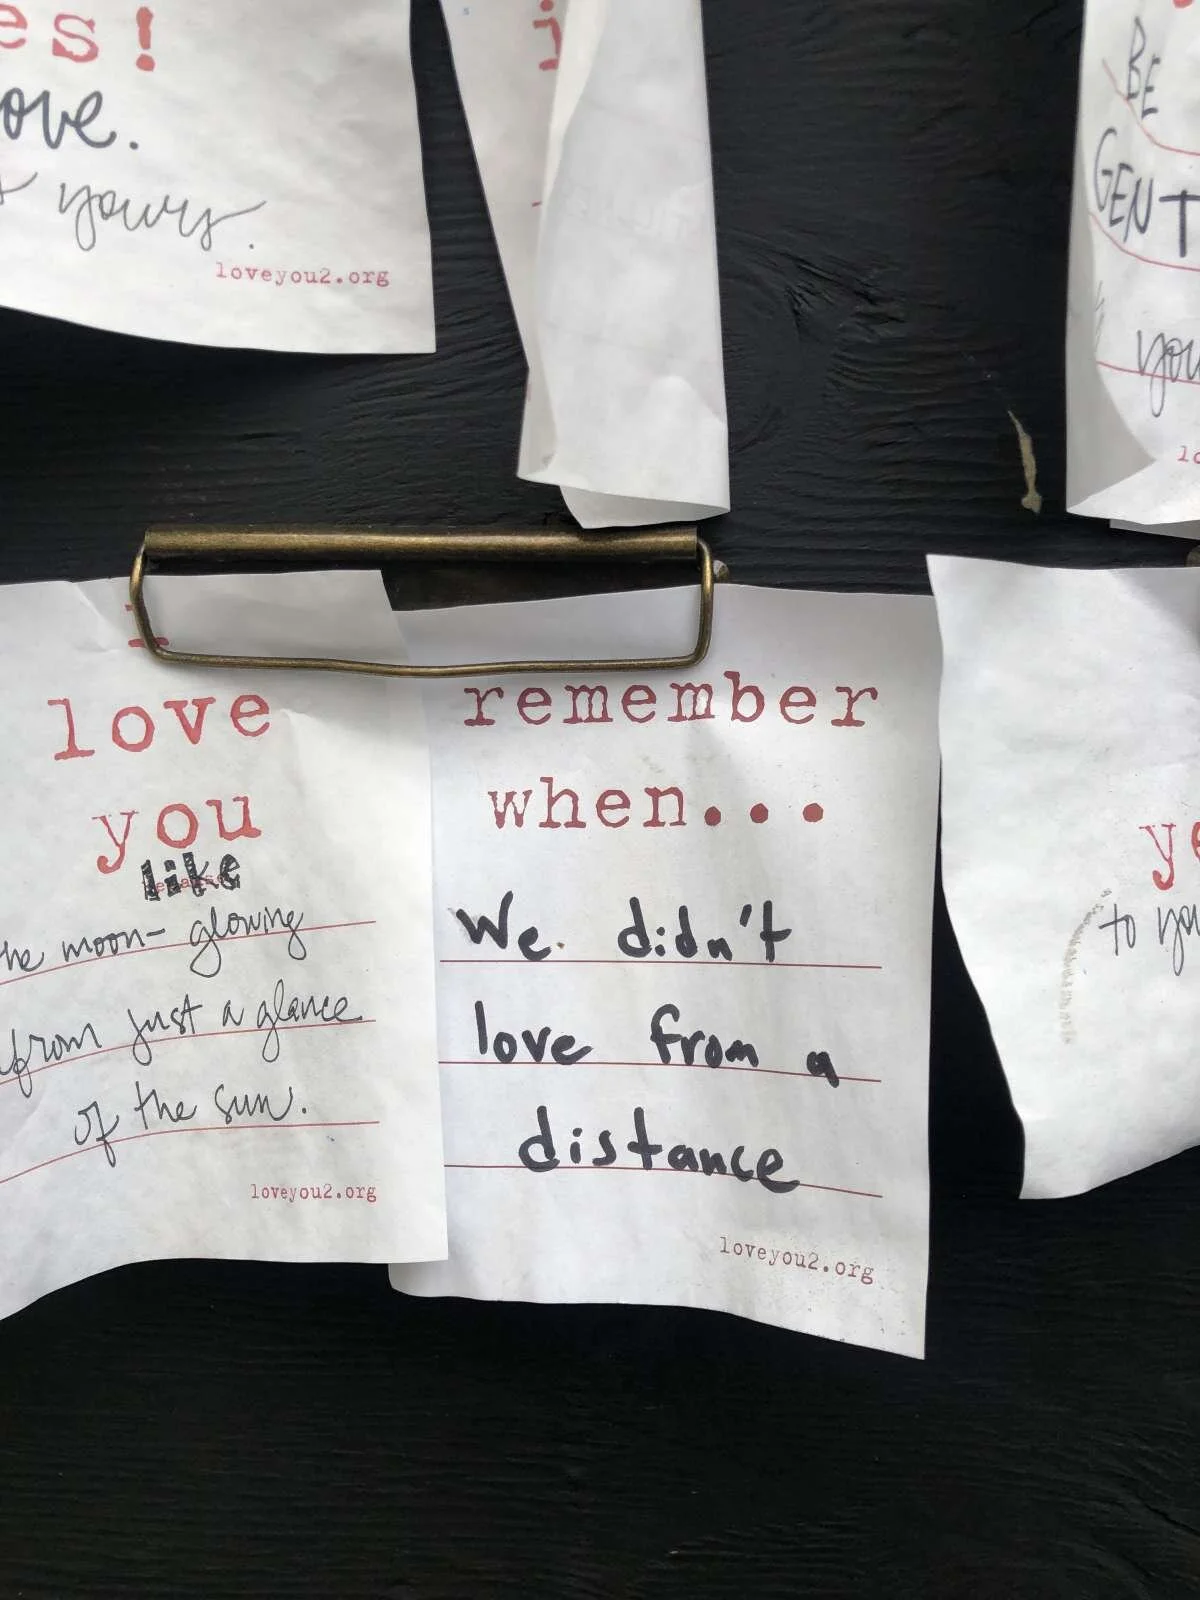 es!
ove.
yours.
loveyou2.org
BE
GENT
you
lo
i
love
you
like
the moon- glowing
from just a glance
of the sun.
loveyou2.org
remember
when...
We didn't
love from a
distance
loveyou2.org
ye
to you